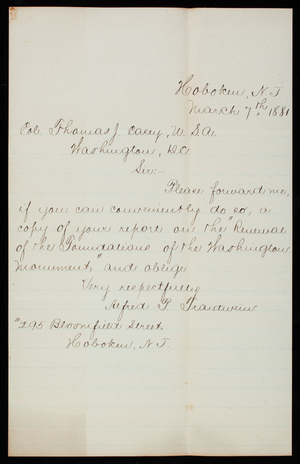 Hoboken, N.J.
March 7th, 1881
Col. Thomas J. Casey, U.S.A.
Washington, D.C.
Sir:—
Please forward me,
if you can conveniently do so, a
copy of your report on the "Renewal
of the Foundations of the Washington
Monument" and oblige
Very respectfully
Alfred P. Trautwein
295 Bloomfield Street
Hoboken, N.J.